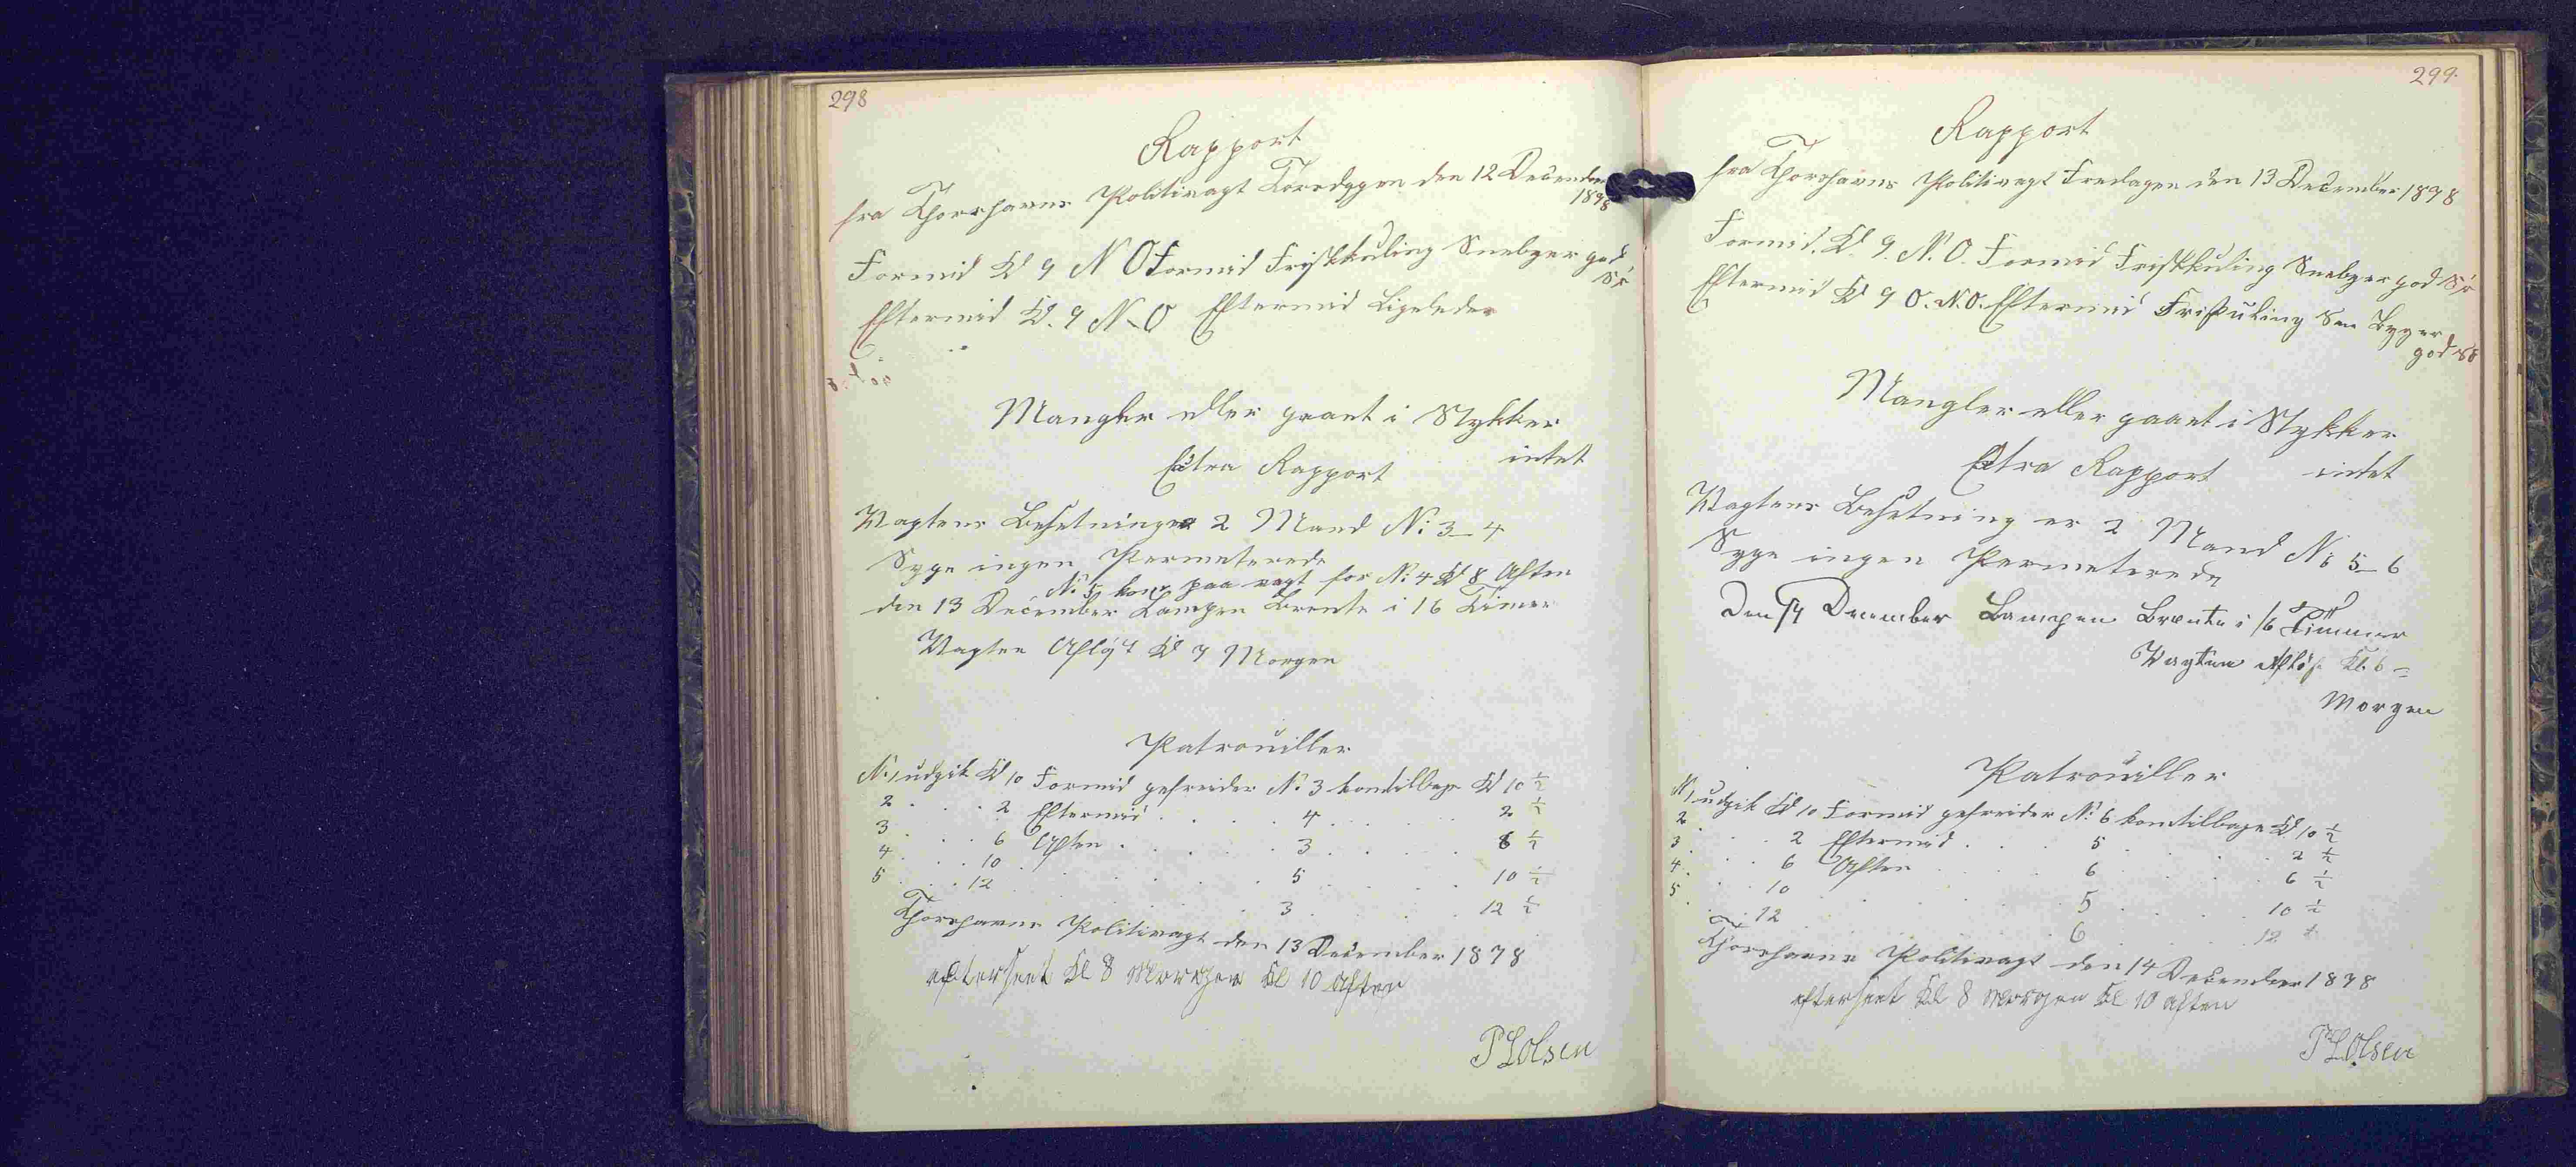 298
Rapport
fra Thorshavns Politivagt Torsdagen den 12 December
1878
Formid Kl 9 N O Formid Friskkuling Snebyger god
Str
Eftermid Kl. 9 N-O Eftermid Ligeledes
Mangler eller gaaet i Stykker
intet
Extra Rapport
Vagtens Besetning er 2 Mand No 3-4
Syge ingen Permeterede
No 5 kom paa vagt for No 4 Kl 8 Aften
den 13 December Lampen Brente i 16 Timer
Vagten Afløst Kl 7 Morgen
Patrouiller
No 1 udgik Kl 10 Formid gefreider No 3 kom tilbage Kl 10 ½
2 . . . 2 Eftermid . . . 4 . . . 2 ½
3 . . . 6 Aften . . . 3 . . . 6 ½
4 . . . 10 . . . 5 . . . 10 ½
5 . . . 12 . . . 3 . . . 12 ½
Thorshavns Politivagt den 13 December 1878
efterseet Kl 8 Morgen Kl 10 Aften
P L Olsen
299.
Rapport
fra Thorshavns Politivagt Fredagen den 13 December 1878
Formid. Kl. 9. N. O. Formid Friskkuling Snebyger god Str
Eftermid Kl 9 O. N. O. Eftermid Friskuling Sne Byger
god
Mangler eller gaaet i Stykker
Extra Rapport intet
Vagtens Besetning er 2 Mand No 5-6
Syge ingen Permeterede
Den 14 December Lampen Brænte i 16 Timmer
Vagten Afløst Kl. 6 =
Morgen
Patrouiller
N 1 udgik Kl 10 Formid gefreider No 6 kom tilbage Kl 10 ½
2 . . . 2 Eftermid . . . 5 . . . 2 ½
3 . . . 6 Aften . . . 6 . . . 6 ½
4 . . . 10 . . . 5 . . . 10 ½
5 . . . 12 . . . 6 . . . 12 ½
Thorshavns Politivagt den 14 December 1878
efterseet Kl 8 Morgen Kl 10 aften
P L Olsen